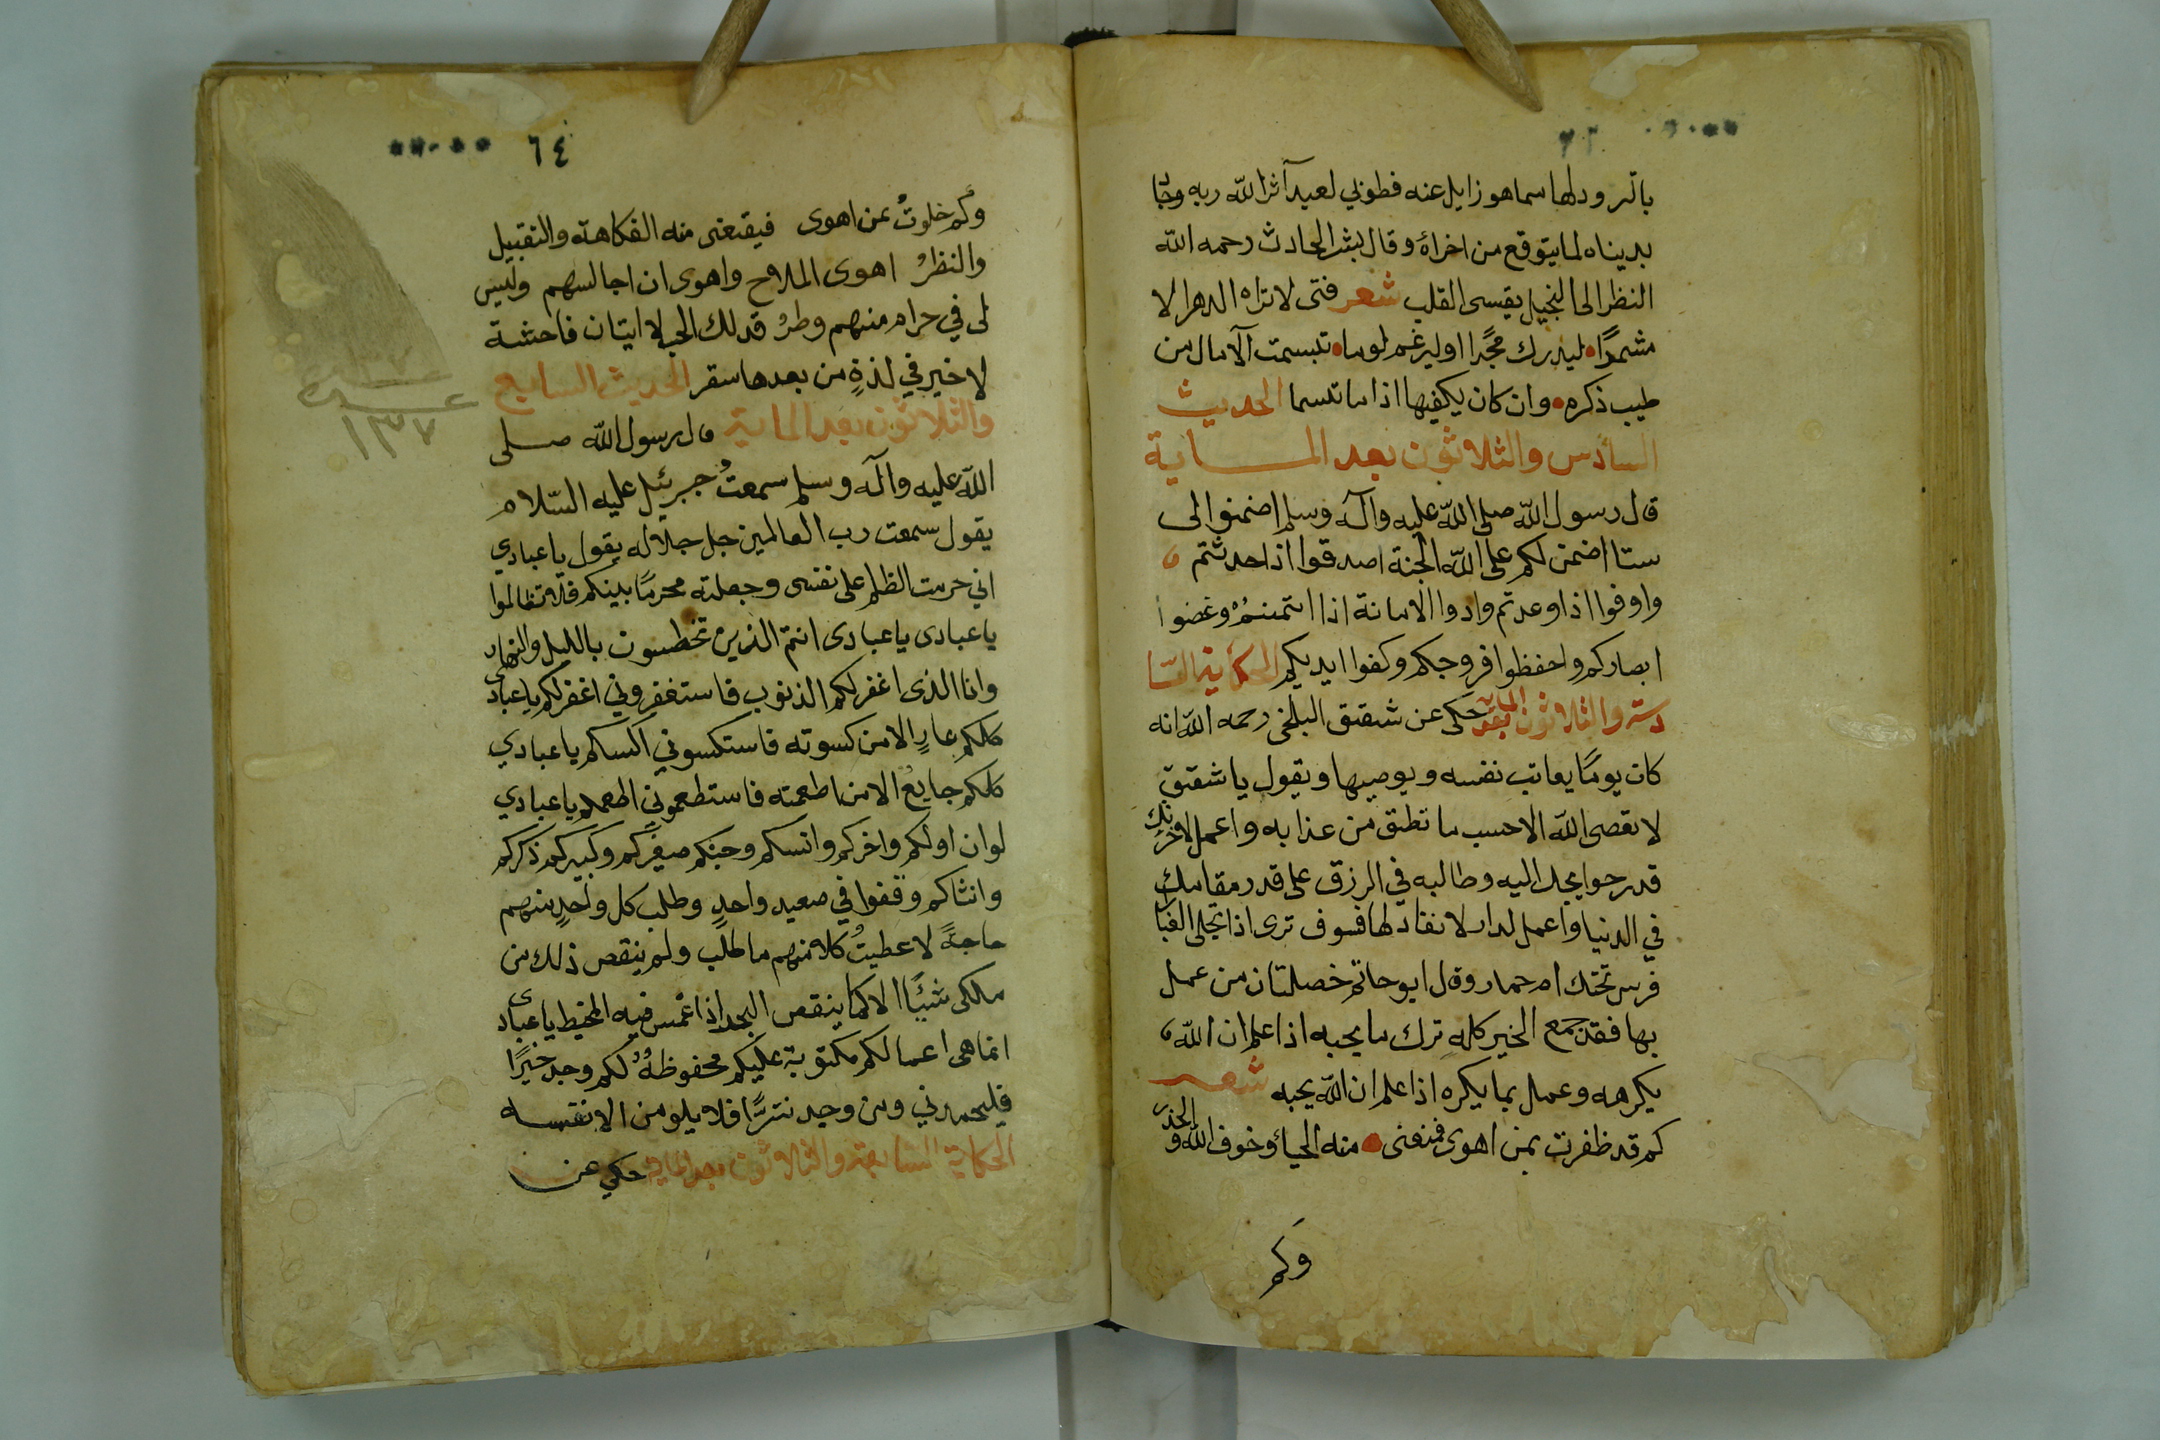 باثر ودلها سما هو زايل عنه فطوبي لعبد آثر الله ربه وجاد
بدنياه لما يتوقع من اخراه وقال بشر الحادث رحمه الله
النظر الى البخيل يقسى القلب شعر فتى لا تراه الدهر الا
مشمرًا ليدرك مجدًا او ليرغم لوما تبسمت الآمال من
طيب ذكره وان كان يكفيها اذا ما تبسما الحديث
السادس والثلاثون بعد الماية
قال رسول الله صلى الله عليه وآله وسلم اضمنوا لى
ستا اضمن لكم على الله الجنة اصدقوا اذا حدثتم
واوفوا اذا وعدتم وادوا الامانة اذا ائتمنتم وغضوا
ابصاركم واحفظوا فروجكم وكفوا ايديكم الحكاية السا
دسة والثلاثون بعد الماية حكى عن شقيق البلخى رحمه الله انه
كان يومًا يعاتب نفسه ويوصيها ويقول يا شقيق
لا تعصى الله الا حسب ما تطيق من عذابه واعمل لاخرتك
قدر حوايجك اليه وطالبه في الرزق على قدر مقامك
في الدنيا واعمل لدار لا نفاد لها فسوف ترى اذا تجلى الغبار
فرس تحتك ام حمار وقال ابو حاتم خصلتان من عمل
بها فقد جمع الخير كله ترك ما يحبه اذا علم ان الله
يكرهه وعمل بما يكره اذا علم ان الله يحبه شعر
كم قد ظفرت بمن اهوى فمنعنى منه الحياء وخوف الله والحذر
وكم
٦٤
وكم خلوت بمن اهوى فيقنعنى منه الفكاهة والتقبيل
والنظرُ اهوى الملاح واهوى ان اجالسهم وليس
لى في حرام منهم وطرُ كذلك الحب لا اتيان فاحشة
لا خير في لذةٍ من بعدها سقر الحديث السابع
والثلاثون بعد الماية قال رسول الله صلى
الله عليه وآله وسلم سمعتُ جبرئيل عليه السّلام
يقول سمعت رب العالمين جل جلاله يقول يا عبادي
اني حرمت الظلم على نفسى وجعلته محرمًا بينكم فلا تظالموا
يا عبادى يا عبادى انتم الذين تخطئون بالليل والنهار
وانا الذى اغفر لكم الذنوب فاستغفروني اغفر لكم يا عبادى
كلكم عارٍ الا من كسوته فاستكسوني اكسكم يا عبادي
كلكم جايع الا من اطعمته فاستطعموني اطعمكم يا عبادي
لو ان اولكم واخركم وانسكم وجنكم صغيركم وكبيركم ذكركم
وانثاكم وقفوا في صعيد واحدٍ وطلب كل واحدٍ منهم
حاجةً لاعطيتُ كلا منهم ما طلب ولم ينقص ذلك من
ملكى شيئًا الا كما ينقص البحر اذا غمس فيه المخيط يا عبادى
انما هى اعمالكم مكتوبة عليكم محفوظةٌ لكم وجد خيرًا
فليحمدني ومن وجد شرًا فلا يلومن الا نفسه
الحكاية السابعة والثلاثون بعد الماية حكي عن
١٣٧